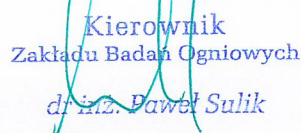 Kierownik
Zakładu Badań Ogniowych
dr inż. Paweł Sulik